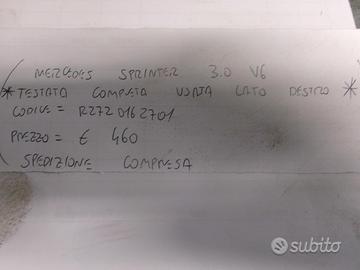 MERCEDES SPRINTER 3.0 V6
* TESTATA COMPLETA USATA LATO DESTRO *
CODICE = R2720162701
PREZZO = € 460
SPEDIZIONE COMPRESA
subito